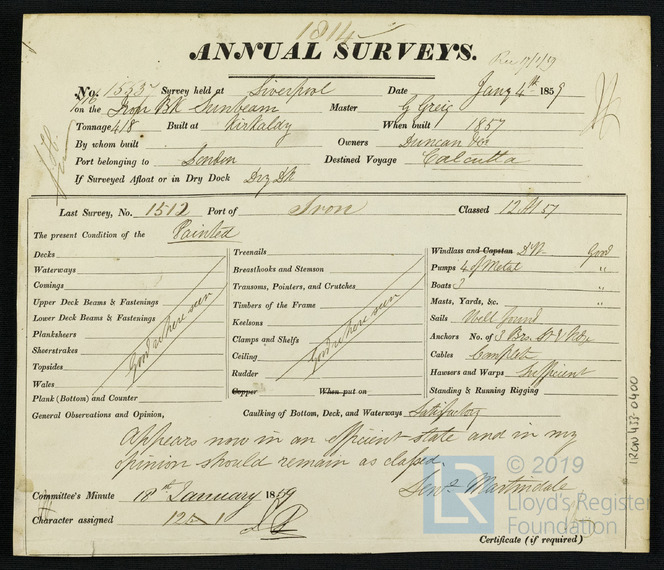 1814
ANNUAL SURVEYS.
Rec 17/1/59
No. 1535 Survey held at Liverpool Date Jany 4th 1859
on the Iron Bk Sunbeam Master G Greig
Tonnage 418 Built at Kirkaldy When built 1857
By whom built Owners Duncan
Port belonging to London Destined Voyage Calcutta
If Surveyed Afloat or in Dry Dock Dry Dk
Last Survey, No. 1512 Port of Iron Classed 12 A1 57
The present Condition of the Painted
Decks
Waterways
Comings
Upper Deck Beams & Fastenings
Lower Deck Beams & Fastenings
Planksheers
Sheerstrakes
Topsides
Wales
Plank (Bottom) and Counter
Good where seen
Treenails
Breasthooks and Stemson
Transoms, Pointers, and Crutches
Timbers of the Frame
Keelsons
Clamps and Shelfs
Ceiling
Rudder
Copper When put on
Good where seen
Windlass and Capstan Good
Pumps 4 of Metal "
Boats 3 "
Masts, Yards, &c. "
Sails Well found
Anchors No. of 3 Brs. St &
Cables Complete
Hawsers and Warps Sufficient
Standing & Running Rigging
General Observations and Opinion, Caulking of Bottom, Deck, and Waterways Satisfactory
Appears now in an efficient state and in my
opinion should remain as classed.
Martindale
Committee's Minute 18th January 1859
Character assigned 12 A 1
Certificate (if required)
IRON 433-0400
LR
© 2019
Lloyd's Register
Foundation